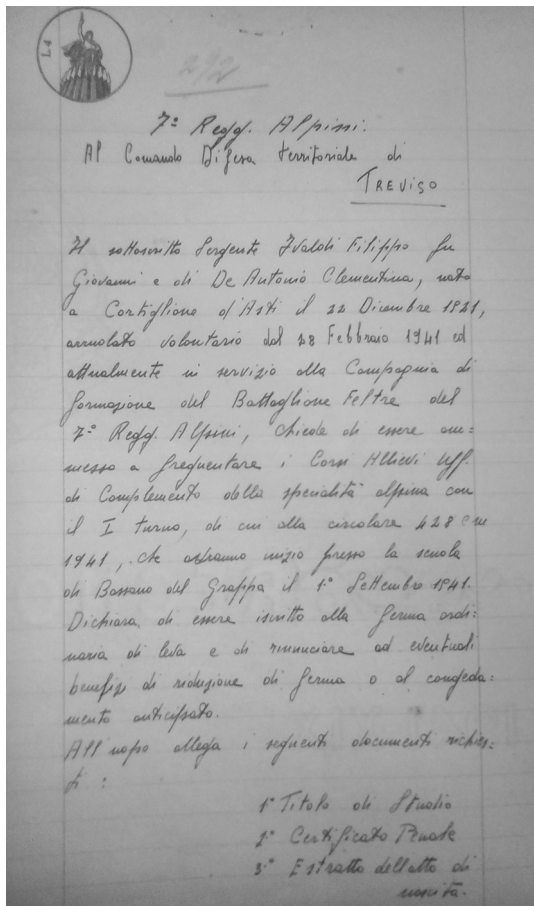 L4
292
7º Regg. Alpini.
Al Comando Difesa territoriale di
TREVISO
Il sottoscritto Sergente Ivaldi Filippo fu
Giovanni e di De Antonio Clementina, nato
a Cortiglione d'Asti il 22 Dicembre 1921,
arruolato volontario dal 28 Febbraio 1941 ed
attualmente in servizio alla Compagnia di
formazione del Battaglione Feltre del
7º Regg. Alpini, chiede di essere am=
messo a frequentare i Corsi Allievi Uff.
di Complemento della specialità alpina con
il I turno, di cui alla circolare 428 
1941, che avranno inizio presso la scuola
di Bassano del Grappa il 1º Settembre 1941.
Dichiara di essere iscritto alla ferma ordi=
naria di leva e di rinunciare ad eventuali
benefizi di riduzione di ferma o al congeda=
mento anticipato.
All'uopo allega i seguenti documenti richies=
ti :
1º Titolo di Studio
2º Certificato Penale
3.º Estratto dell'atto di
nascita.